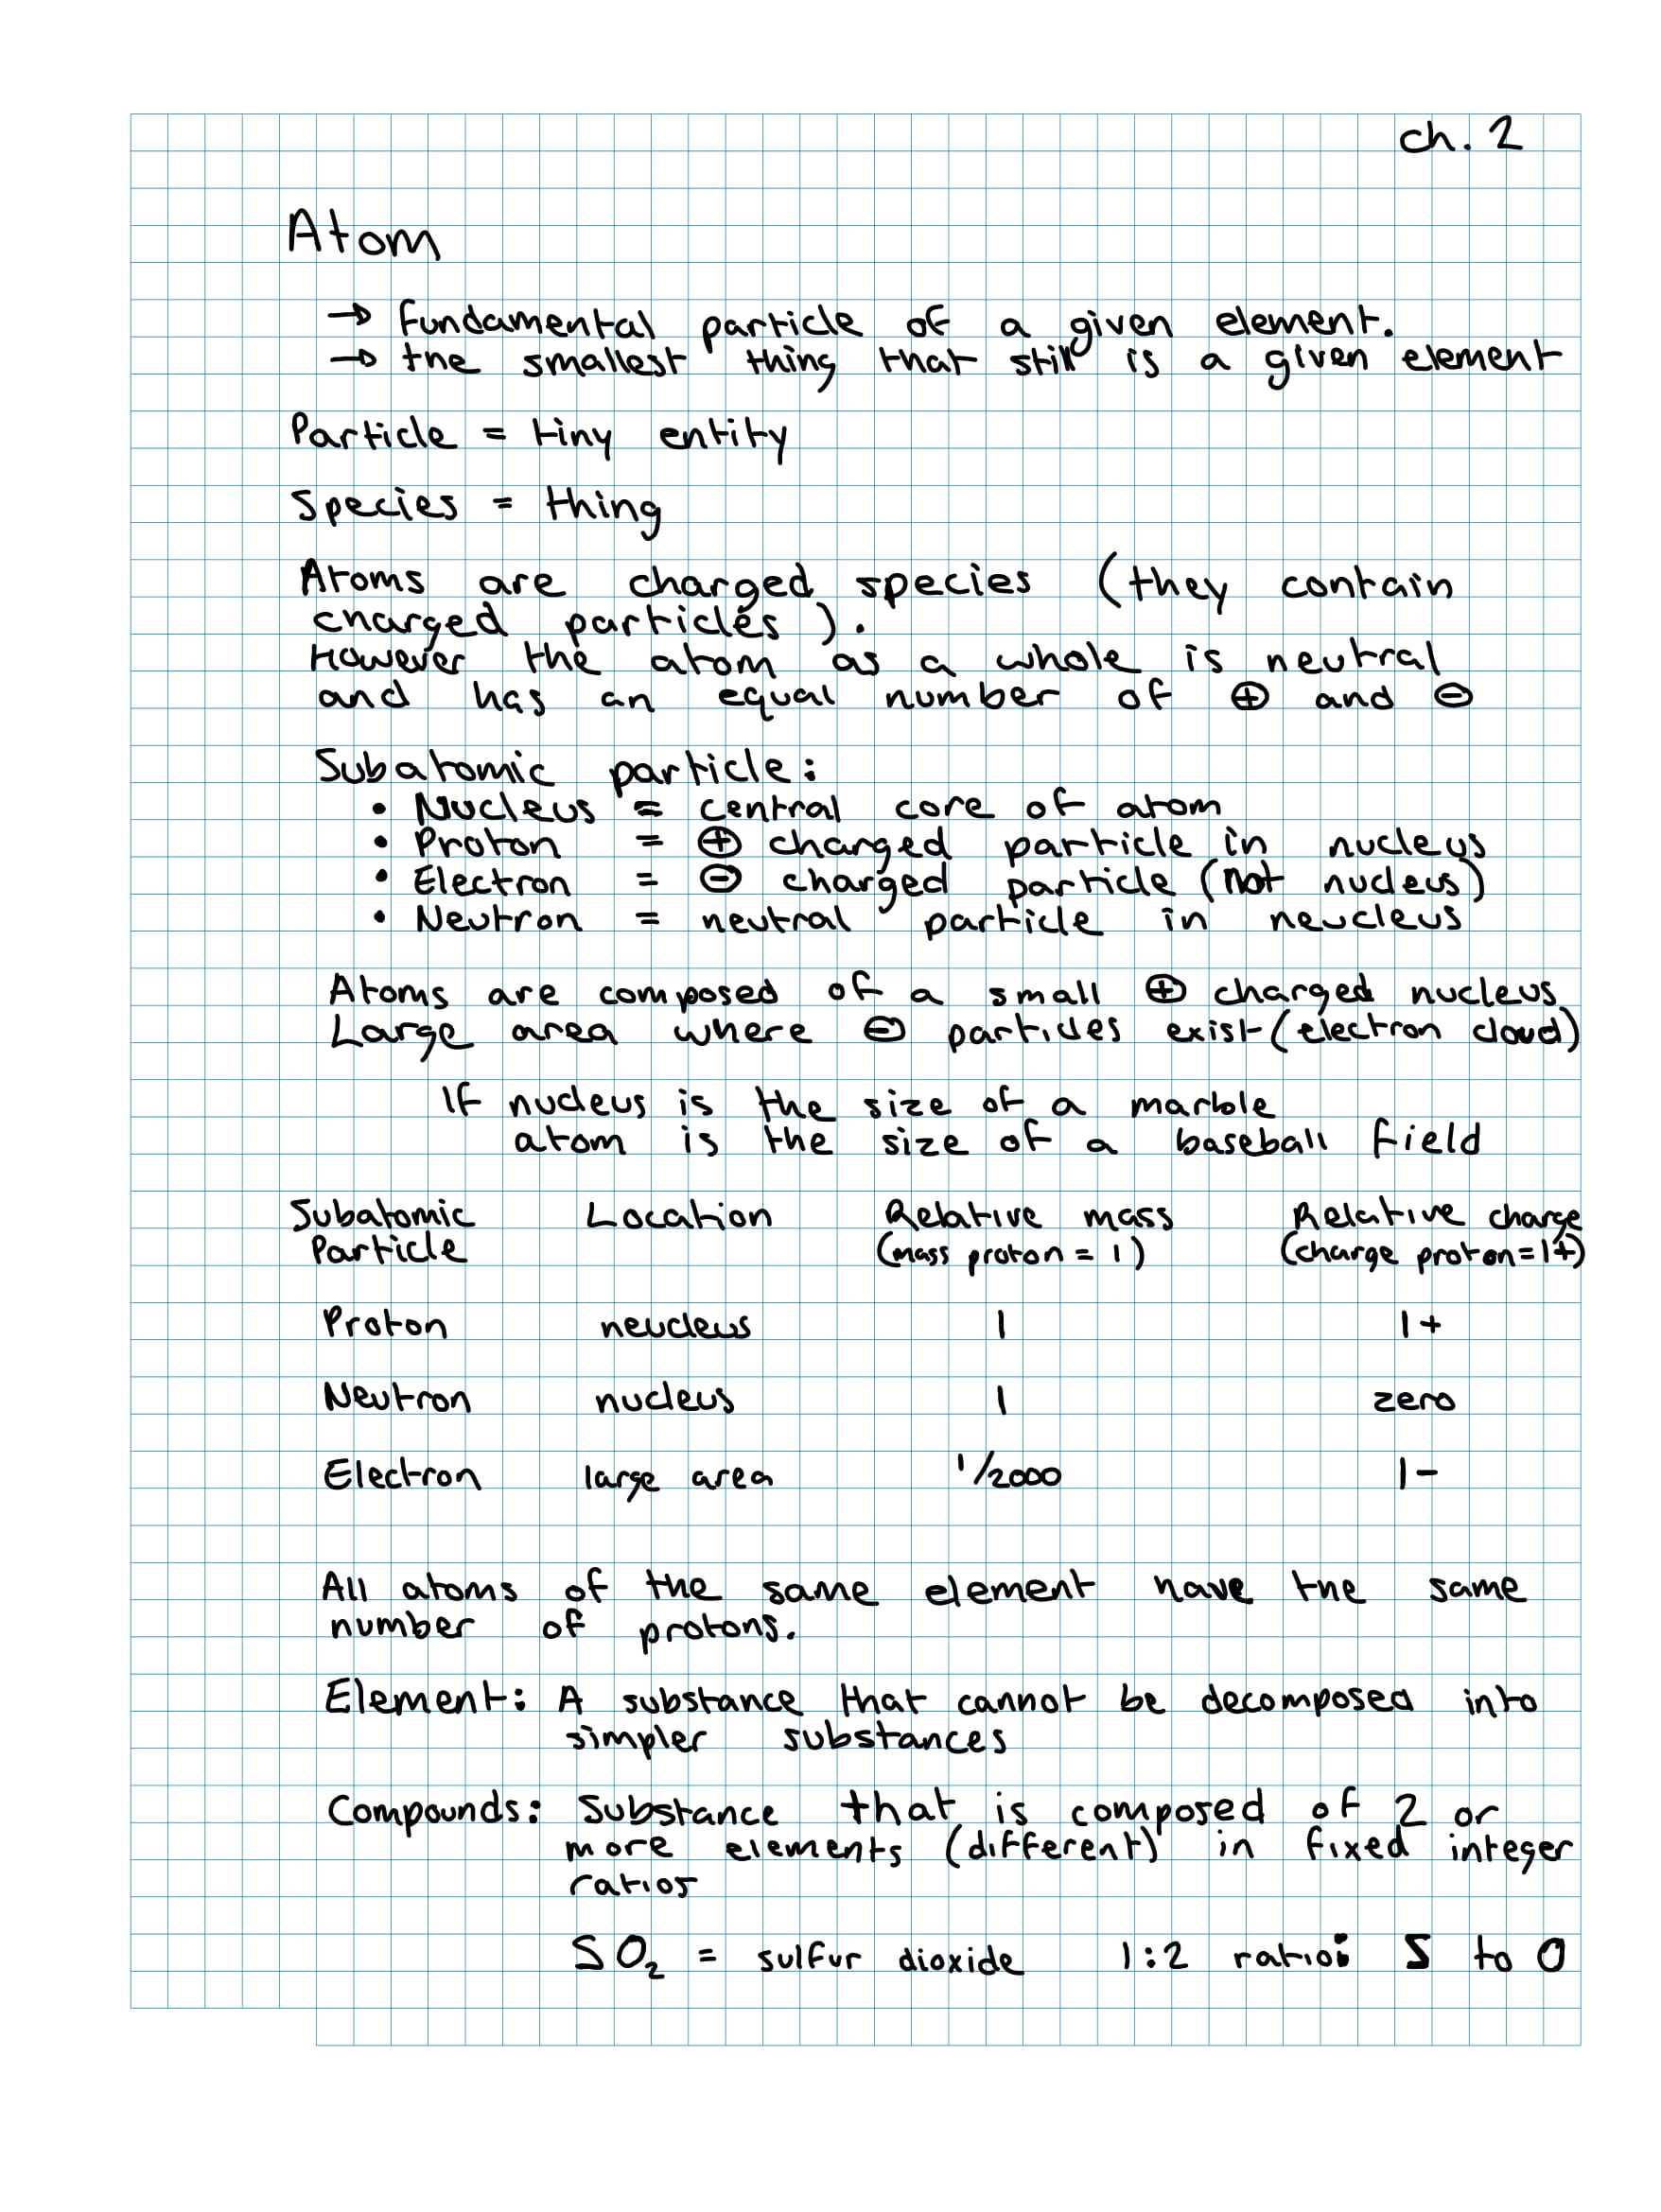 ch. 2
Atom
→ fundamental particle of a given element.
→ the smallest thing that still is a given element
Particle = tiny entity
Species = thing
Atoms are charged species (they contain
charged particles).
However the atom as a whole is neutral
and has an equal number of ⊕ and ⊖
Subatomic particle:
• Nucleus = central core of atom
• Proton = ⊕ charged particle in nucleus
• Electron = ⊖ charged particle (not nucleus)
• Neutron = neutral particle in neucleus
Atoms are composed of a small ⊕ charged nucleus
Large area where ⊖ particles exist (electron cloud)
If nucleus is the size of a marble
atom is the size of a baseball field
Subatomic Location Relative mass Relative charge
Particle (mass proton = 1) (charge proton = 1+)
Proton neucleus 1 1+
Neutron nucleus 1 zero
Electron large area 1/2000 1-
All atoms of the same element have the same
number of protons.
Element: A substance that cannot be decomposed into
simpler substances
Compounds: Substance that is composed of 2 or
more elements (different) in fixed integer
ratios
SO₂ = sulfur dioxide 1:2 ratio: S to O